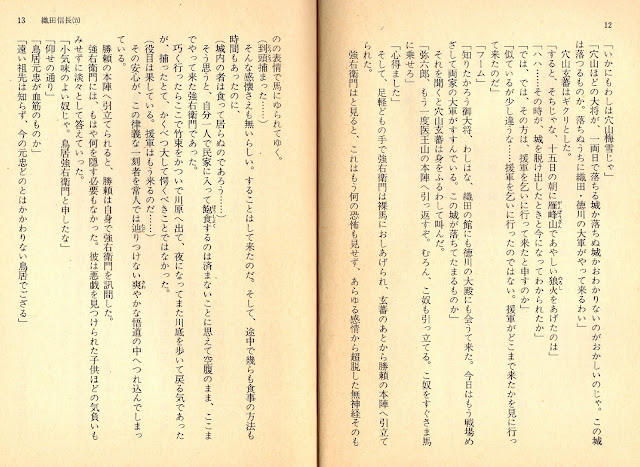 12
「いかにもわしは穴山梅雪じゃ」
「穴山ほどの大将が、一両日で落ちる城か落ちぬ城かおわかりないのがおかしいのじゃ。この城
は落つるものか。落ちぬうちに織田・徳川の大軍がやって来るわい」
穴山玄蕃はギクリとした。
「すると、そちじゃな、十五日の朝に雁峰山であやしい狼火をあげたのは」
「ハハ……その時が、城を脱け出したときと今になってわかられたか」
「では、では、その方は、援軍を乞いに行って来たと申すのか」
「似ているが少し違うな……援軍を乞いに行ったのではない。援軍がどこまで来たかを見に行っ
て来たのだ」
「フーム」
「知りたかろう御大将、わしはな、織田の館にも徳川の大殿にも会うて来た。今日はもう戦場め
ざして両家の大軍がすすんでいる。この城が落ちてたまるものか」
それを聞くと穴山玄蕃は身をふるわして叫んだ。
「弥六郎、もう一度医王山の本陣へ引っ返すぞ。むろん、こ奴も引っ立てる。こ奴をすぐさま馬
に乗せろ」
「心得ました」
そして、足軽どもの手で強右衛門は裸馬におしあげられ、玄蕃のあとから勝頼の本陣へ引立て
られた。
強右衛門はと見ると、これはもう何の恐怖も見せず、あらゆる感情から超脱した無神経そのも
13 織田信長(五)
のの表情で馬にゆられてゆく。
(到頭捕まった……)
そんな感懐さえも無いらしい。することはして来たのだ。そして、途中で幾らも食事の方法も
時間もあったのに
(城内の者は食って居らぬのであろう……)
そう思うと、自分一人で民家に入って飽食するのは済まないことに思えて空腹のまま、ここま
でやって来た強右衛門であった。
巧く行ったらここで竹束をかついで川原へ出て、夜になってまた川底を歩いて戻る気であった
が、捕ったとて、かくべつ大して愕くべきことではなかった。
(役目は果している。援軍はもう来るのだ……)
その安心が、この律義な一刻者を常人では辿りつけない爽やかな悟道の中へつれ込んでしまっ
ている。
勝頼の本陣へ引立てられると、勝頼は自身で強右衛門を訊問した。
強右衛門には、もはや何を隠す必要もなかった。彼は悪戯を見つけられた子供ほどの気負いも
みせずに淡々として答えていった。
「小気味のよい奴じゃ。鳥居強右衛門と申したな」
「仰せの通り」
「鳥居元忠が血筋のものか」
「遠い祖先は知らず、今の元忠どのとはかかわりない鳥居でござる」